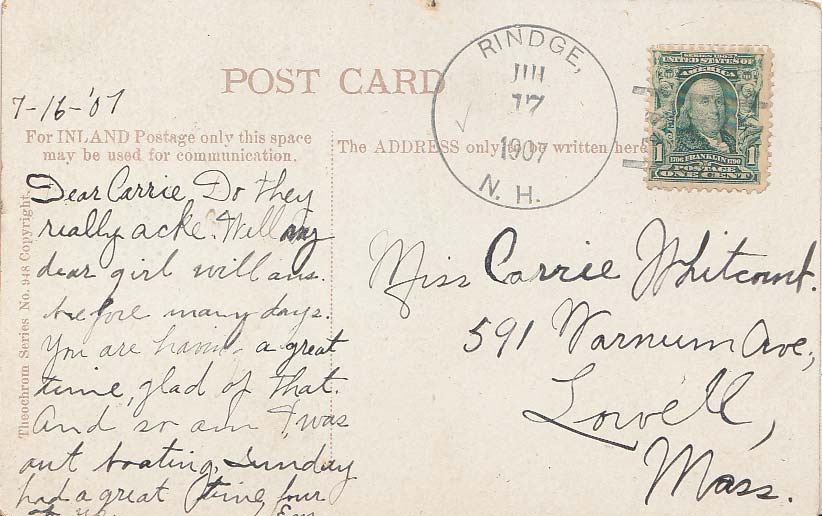 POST CARD
7-16-'07
For INLAND Postage only this space
may be used for communication.
The ADDRESS only to be written here
RINDGE,
JUL
17
1907
N. H.
SERIES 1902
UNITED STATES OF
AMERICA
1706 FRANKLIN 1790
1 1
POSTAGE
ONE CENT
Theochrom Series No. 948 Copyright
Dear Carrie Do they
really ache? Well my
dear girl will ans.
before many days.
You are having a great
time, glad of that.
And so am I, was
out boating, Sunday
had a great time four
of us. Em
Miss Carrie Whitcomb.
591 Varnum Ave.,
Lowell,
Mass.